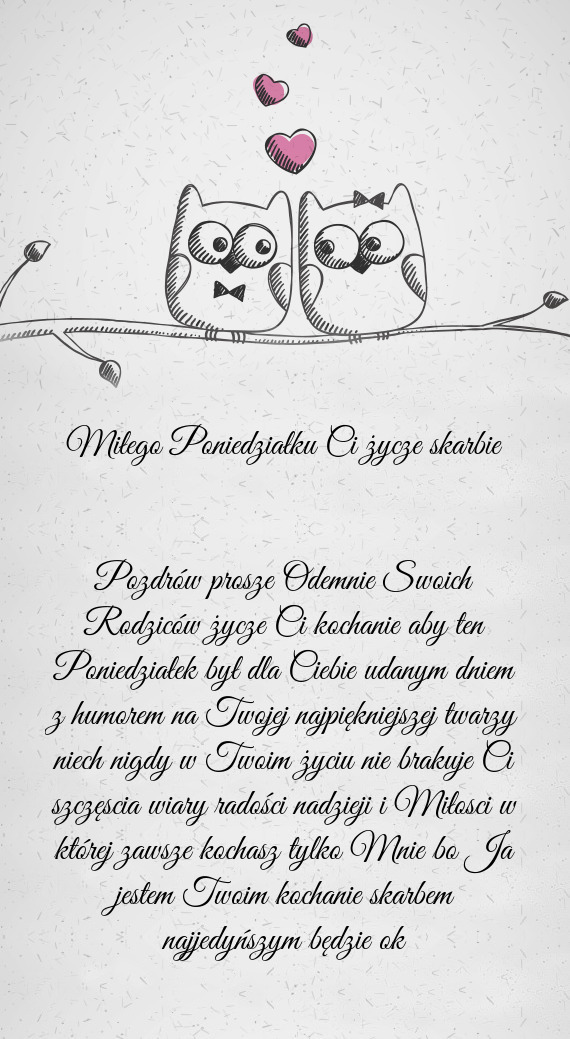 Miłego Poniedziałku Ci życze skarbie
Pozdrów prosze Odemnie Swoich
Rodziców życze Ci kochanie aby ten
Poniedziałek był dla Ciebie udanym dniem
z humorem na Twojej najpiękniejszej twarzy
niech nigdy w Twoim życiu nie brakuje Ci
szczęscia wiary radości nadzieji i Miłosci w
której zawsze kochasz tylko Mnie bo Ja
jestem Twoim kochanie skarbem
najjedyńszym będzie ok